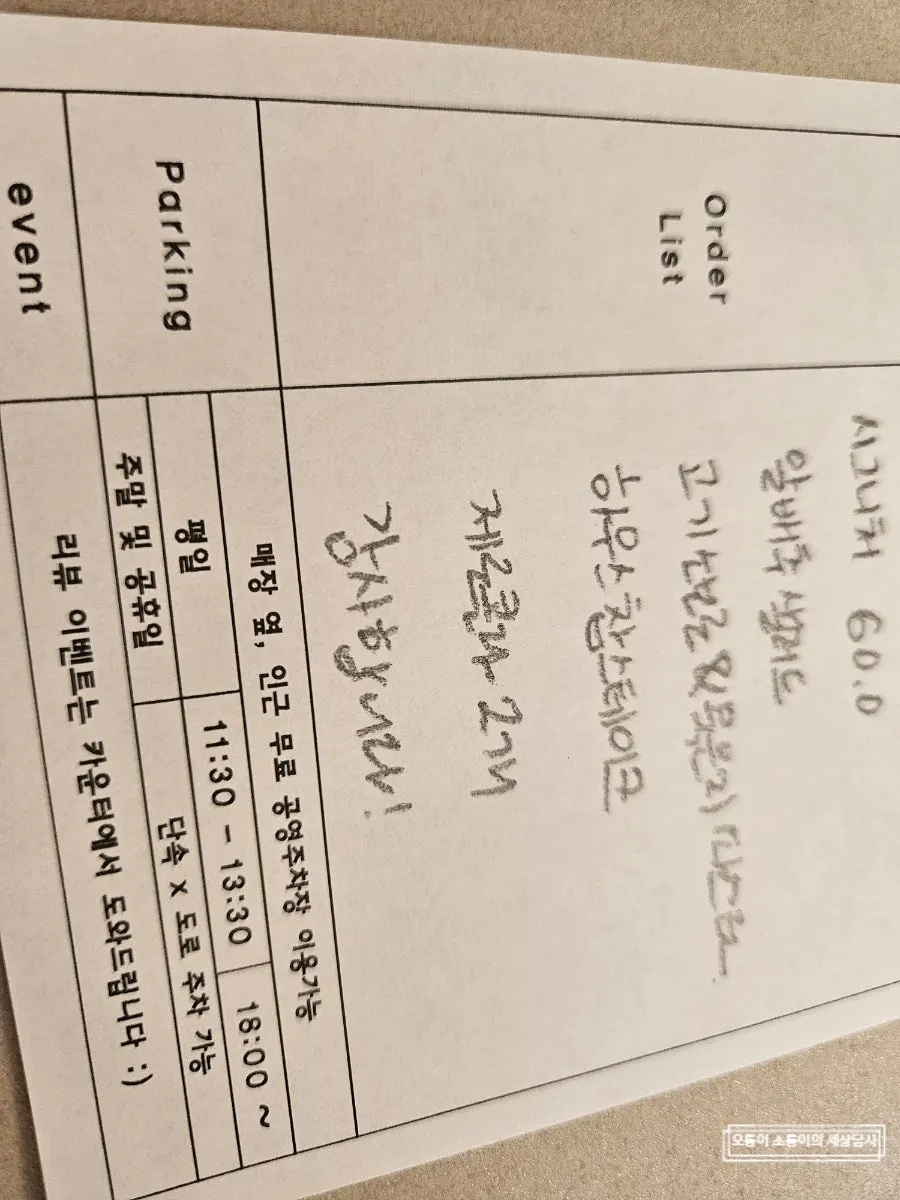 Order
List
시그니처 60.0
알배추 샐러드
고기 노른 & 목은지 파스타
하우스 찹스테이크
제로콜라 2개
감사합니다!
Parking
매장 옆, 인근 무료 공영주차장 이용가능
평일 11:30 - 13:30 18:00 ~
주말 및 공휴일 단속 X 도로 주차 가능
event
리뷰 이벤트는 카운터에서 도와드립니다 :)
오통이 소통이의 세상만사